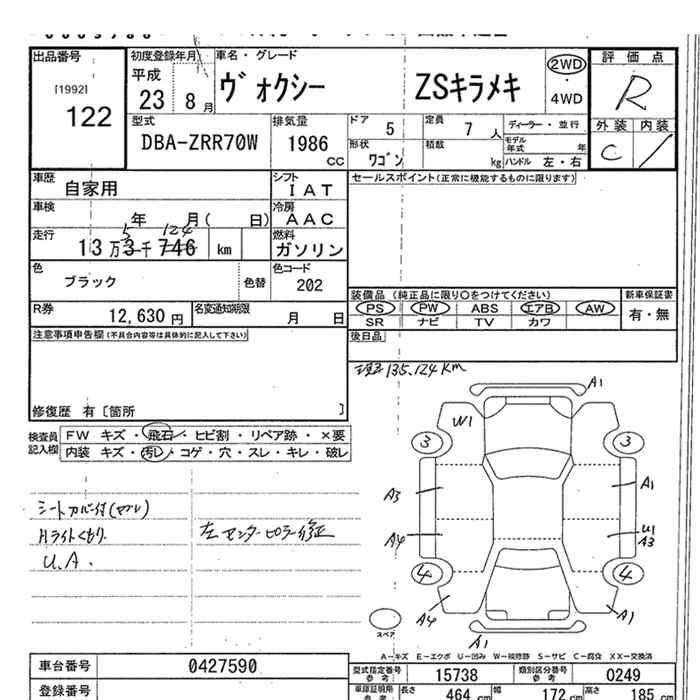 出品番号 初度登録年月 車名・グレード 評価点
[1992] 122 平成 23 8月 ヴォクシー ZSキラメキ 2WD 4WD R
型式 排気量 ドア 定員 ディーラー・並行 外装 内装
DBA-ZRR70W 1986 CC 5 7人 モデル年式 年 C
形状 ワゴン 積載 kg ハンドル 左・右
車歴 自家用 シフト IAT セールスポイント(正常に機能するものに限ります)
車検 年 月( 日) 冷房 AAC
走行 13万3千746 km 5 124 燃料 ガソリン
色 ブラック 色替 色コード 202
装備品 (純正品に限り○をつけてください) 新車保証書
R券 12,630円 名変通知期限 月 日 PS PW ABS エアB AW 有・無
SR ナビ TV カワ
注意事項申告欄(不具合内容等は具体的に記入して下さい) 後日品
現走135,124KM
修復歴 有〔箇所 〕
検査員記入欄 FW キズ・飛石・ヒビ割・リペア跡・×要
内装 キズ・汚レ・コゲ・穴・スレ・キレ・破レ
A1
W1
3 3
A3 A1
シートカバー付(マブレ)
Hライトくもり 左センターピラー修正 A4 U1 A3
U.A.
4 4
A4 A1
スペア
A1
A-キズ E-エクボ U-凹み W-補修跡 S-サビ C-腐食 XX-交換済
車台番号 0427590 型式指定番号 参考 15738 類別区分番号 参考 0249
登録番号 車庫証明用 参考 長さ 464 cm 幅 172 cm 高さ 185 cm